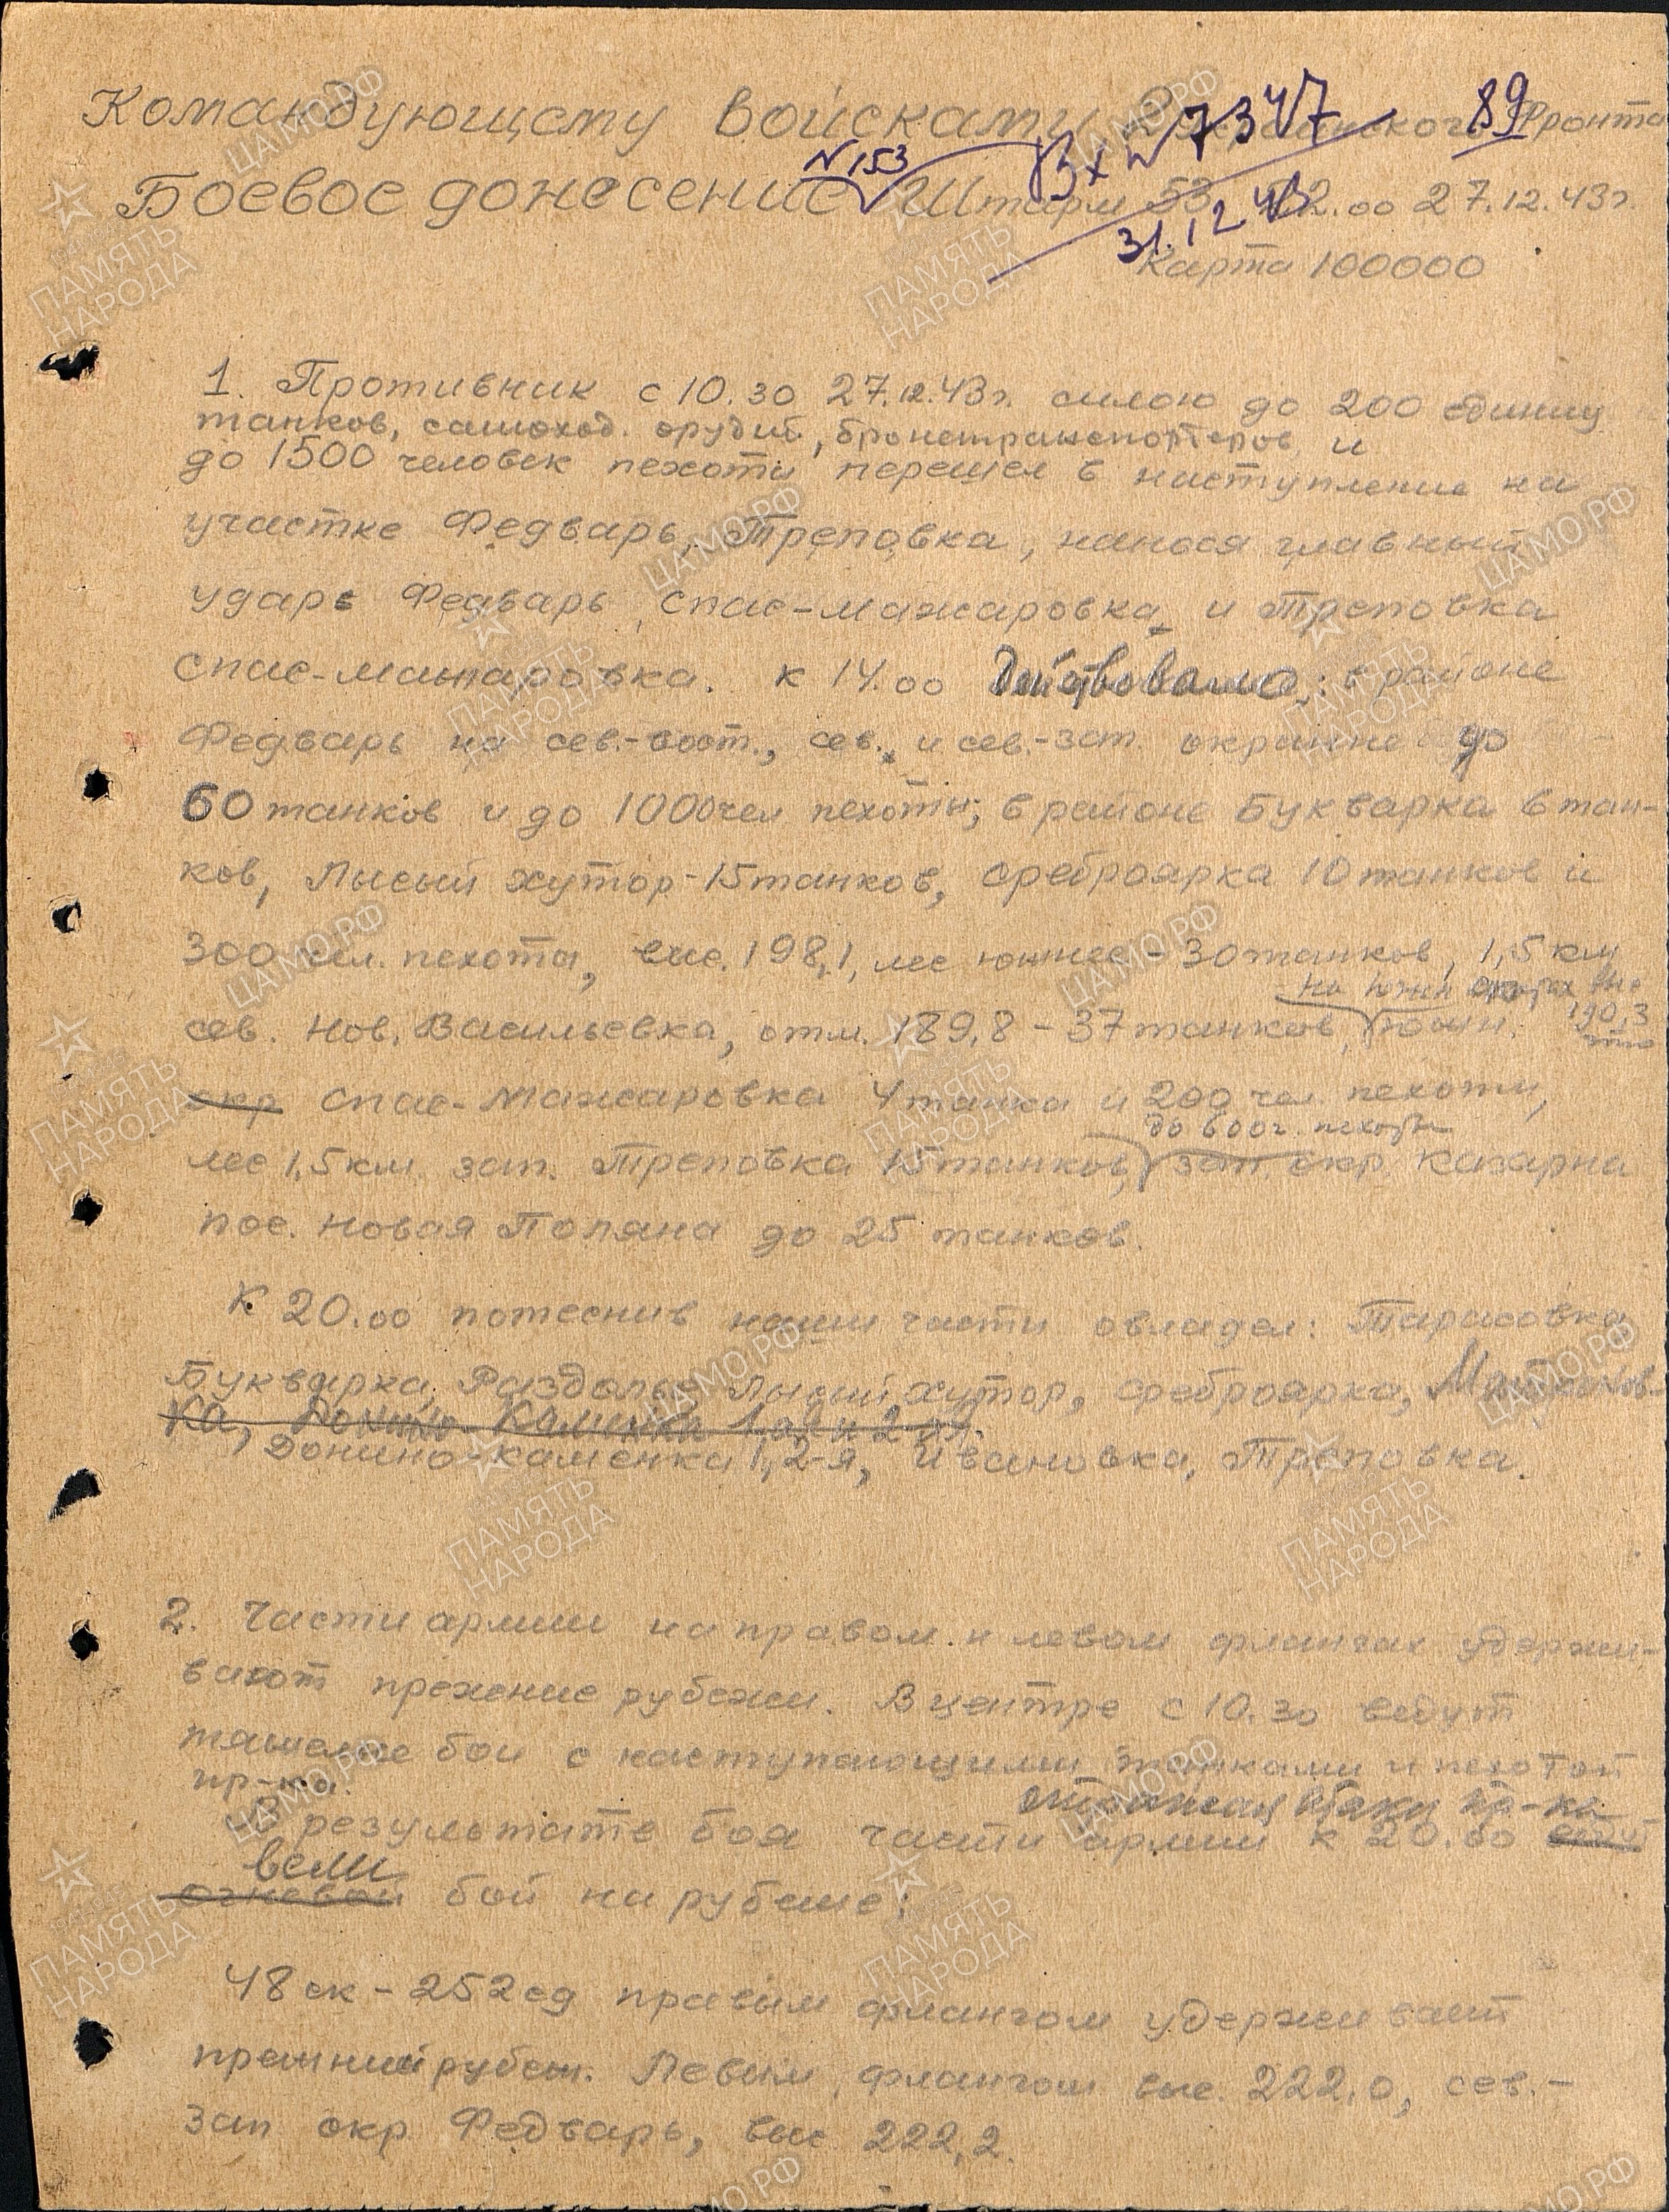 Командующему войсками 2 Украинского Фронта
89
Вх N 7347
31.12.43
Боевое донесение N153 Штарм 53 22.00 27.12.43г.
Карта 100000
1. Противник с 10.30 27.12.43г. силою до 200 единиц
танков, самоход. орудий, бронетранспортеров и
до 1500 человек пехоты перешел в наступление на
участке Федварь, Треповка, нанося главный
ударь Федварь, Спас-Мажаровка и Треповка
Спас-Мажаровка. К 14.00 действовало: в районе
Федварь на сев.-вост., сев. и сев.-зап. окраине до
60 танков и до 1000 чел пехоты; в районе Букварка 6 тан-
ков, Лысый хутор - 15 танков, Среброярка 10 танков и
300 чел. пехоты, выс. 198,1, лес южнее - 30 танков, 1,5 км
на южн скатах выс
190,3
сев. Нов. Васильевка, отм. 189,8 - 37 танков, южн.
окр Спас-Мажаровка 4 танка и 200 чел. пехоты,
до 600 ч. пехоты
лес 1,5 км. зап. Треповка 15 танков, зап. окр. Казарна
пос. Новая Поляна до 25 танков.
К 20.00 потеснив наши части овладел: Тарасовка
Букварка, Раздолье Лысый хутор, Среброярка,
ка, Донино-Каменка 1-ая и 2-ая.
Донино-Каменка 1, 2-я, Ивановка, Треповка.
2. Части армии на правом и левом флангах удержи-
вают прежние рубежи. В центре с 10.30 ведут
тяжелые бои с наступающими танками и пехотой
пр-ка.
отражая атаки пр-ка
В результате боя части армии к 20.00 ведут
вели
огневой бой на рубеже:
48 ск - 252 сд правым флангом удерживает
прежний рубеж. Левым флангом выс. 222,0, сев.-
зап окр Федварь, выс 222,2.
ЦАМО.РФ
ПАМЯТЬ НАРОДА